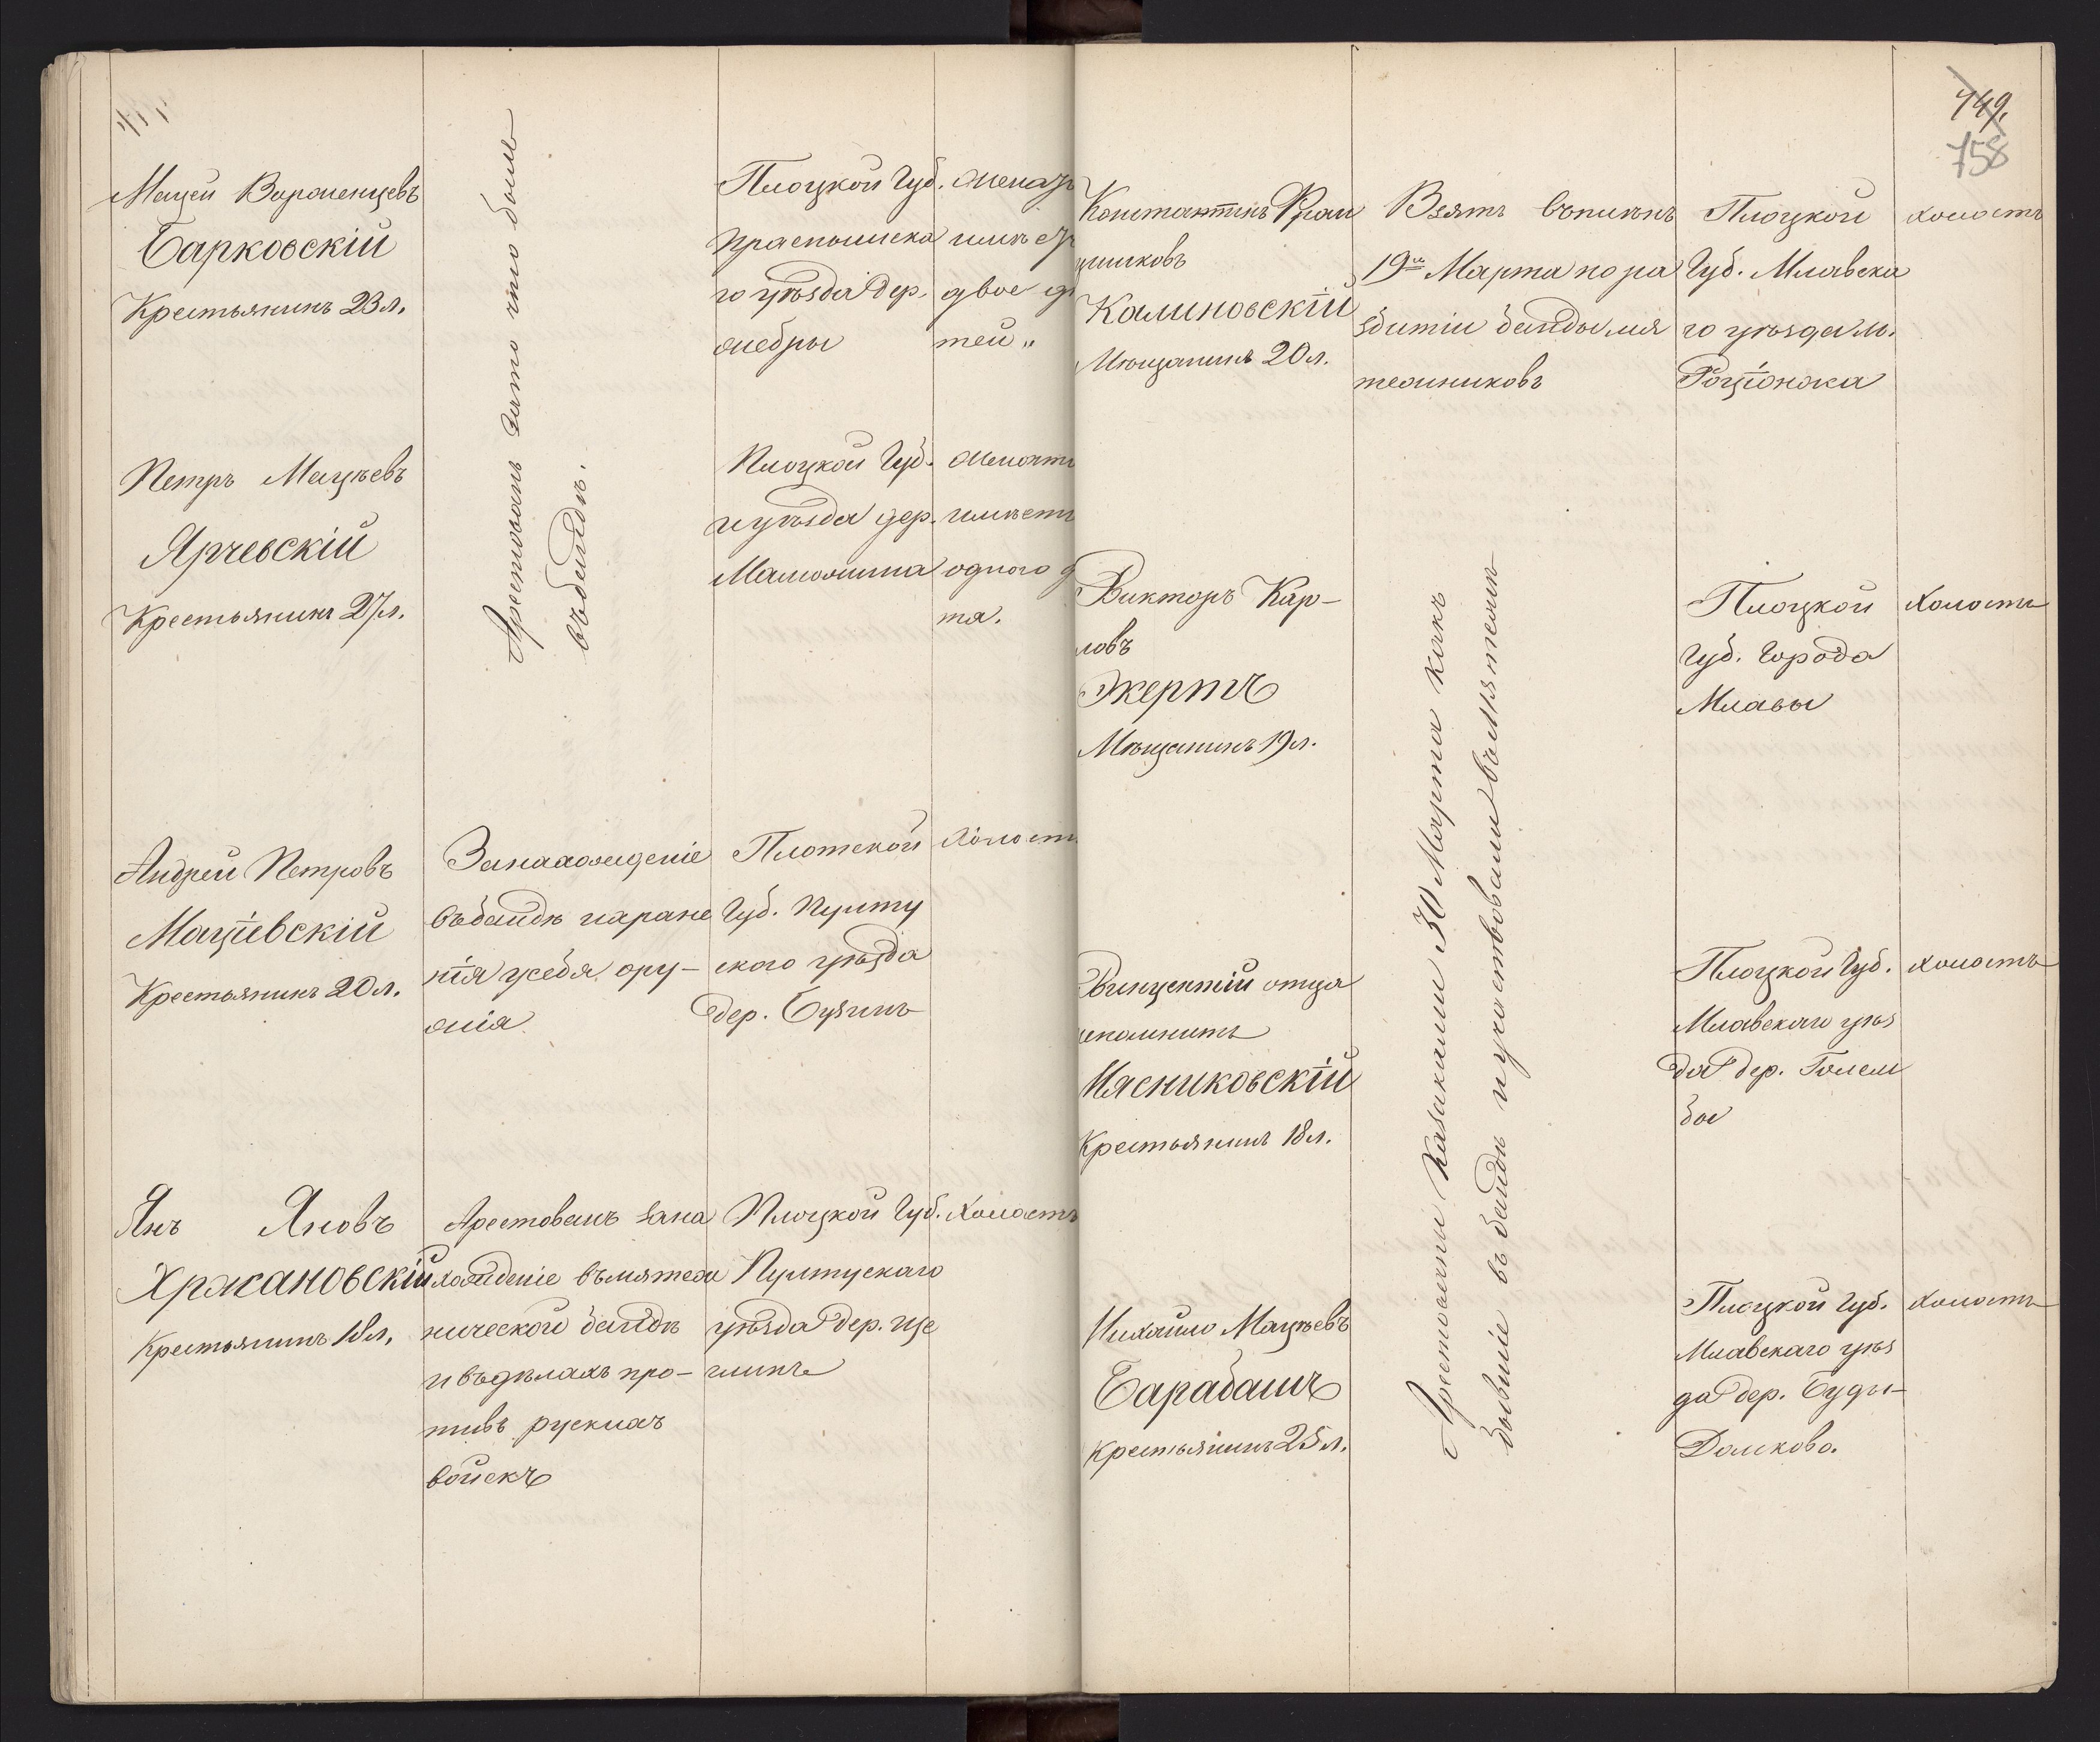 Мацей Вароменцевъ
Барковскій
Крестьянинъ 23 л.
Арестованъ зато что былъ
въ бандѣ.
Плоцкой Губ.
Праснышска
го уѣзда дер.
Жебры
Женат
имѣе
двое д
тей „
Петръ Мацѣевъ
Ярчевскій
Крестьянинъ 27 л.
Плоцкой Губ.
и уѣзда дер.
Мамонина
Женатъ
имѣетъ
одного д
тя.
Андрей Петровъ
Маціевскій
Крестьянинъ 20 л.
За нахожденіе
въ бандѣ и хране
нія у себя ору-
жія
Плотской
Губ. Пулту
ского уѣзда
дер. Бузинъ
Холостъ
Янъ Яновъ
Хржановскій
Крестьянинъ 18 л.
Арестованъ за на
хожденіе въ мятеж
нической бандѣ
и въ дѣлахъ про-
тивъ рускихъ
войскъ
Плоцкой Губ.
Пултускаго
уѣзда дер. Це
пинъ
Холостъ
749.
758
Константинъ Фран
цишковъ
Калиновскій
Мѣщанинъ 20 л.
Взятъ въ плѣнъ
19го Марта по ра
збитіи банды мя
тежниковъ
Плоцкой
Губ. Млавска
го уѣзда м.
Роціонжа
холостъ
Викторъ Кар-
ловъ
Экертъ
Мѣщанинъ 19 л.
Арестованы Казаками 30 Марта какъ
бывшіе въ бандѣ и учавствовали въ мятежѣ
Плоцкой
Губ. Города
Млавы
Холостъ
Винцентій отца
непомнитъ
Мясниковскій
Крестьянинъ 18 л.
Плоцкой Губ.
Млавскаго уѣз
да дер. Голем
бы
холостъ
Михайло Мацѣевъ
Барабашъ
Крестьянинъ 25 л.
Плоцкой Губ.
Млавскаго уѣз
да дер. Буды-
Домково.
Холостъ